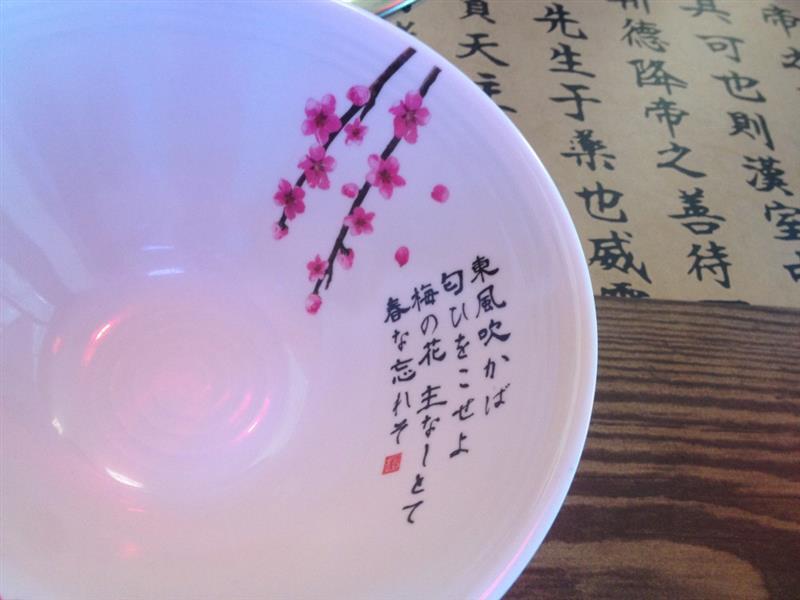 東風吹かば
匂ひをこせよ
梅の花 主なしとて
春な忘れそ
帝
其可也則漢室
德降帝之善待
先生于藥也威
天主